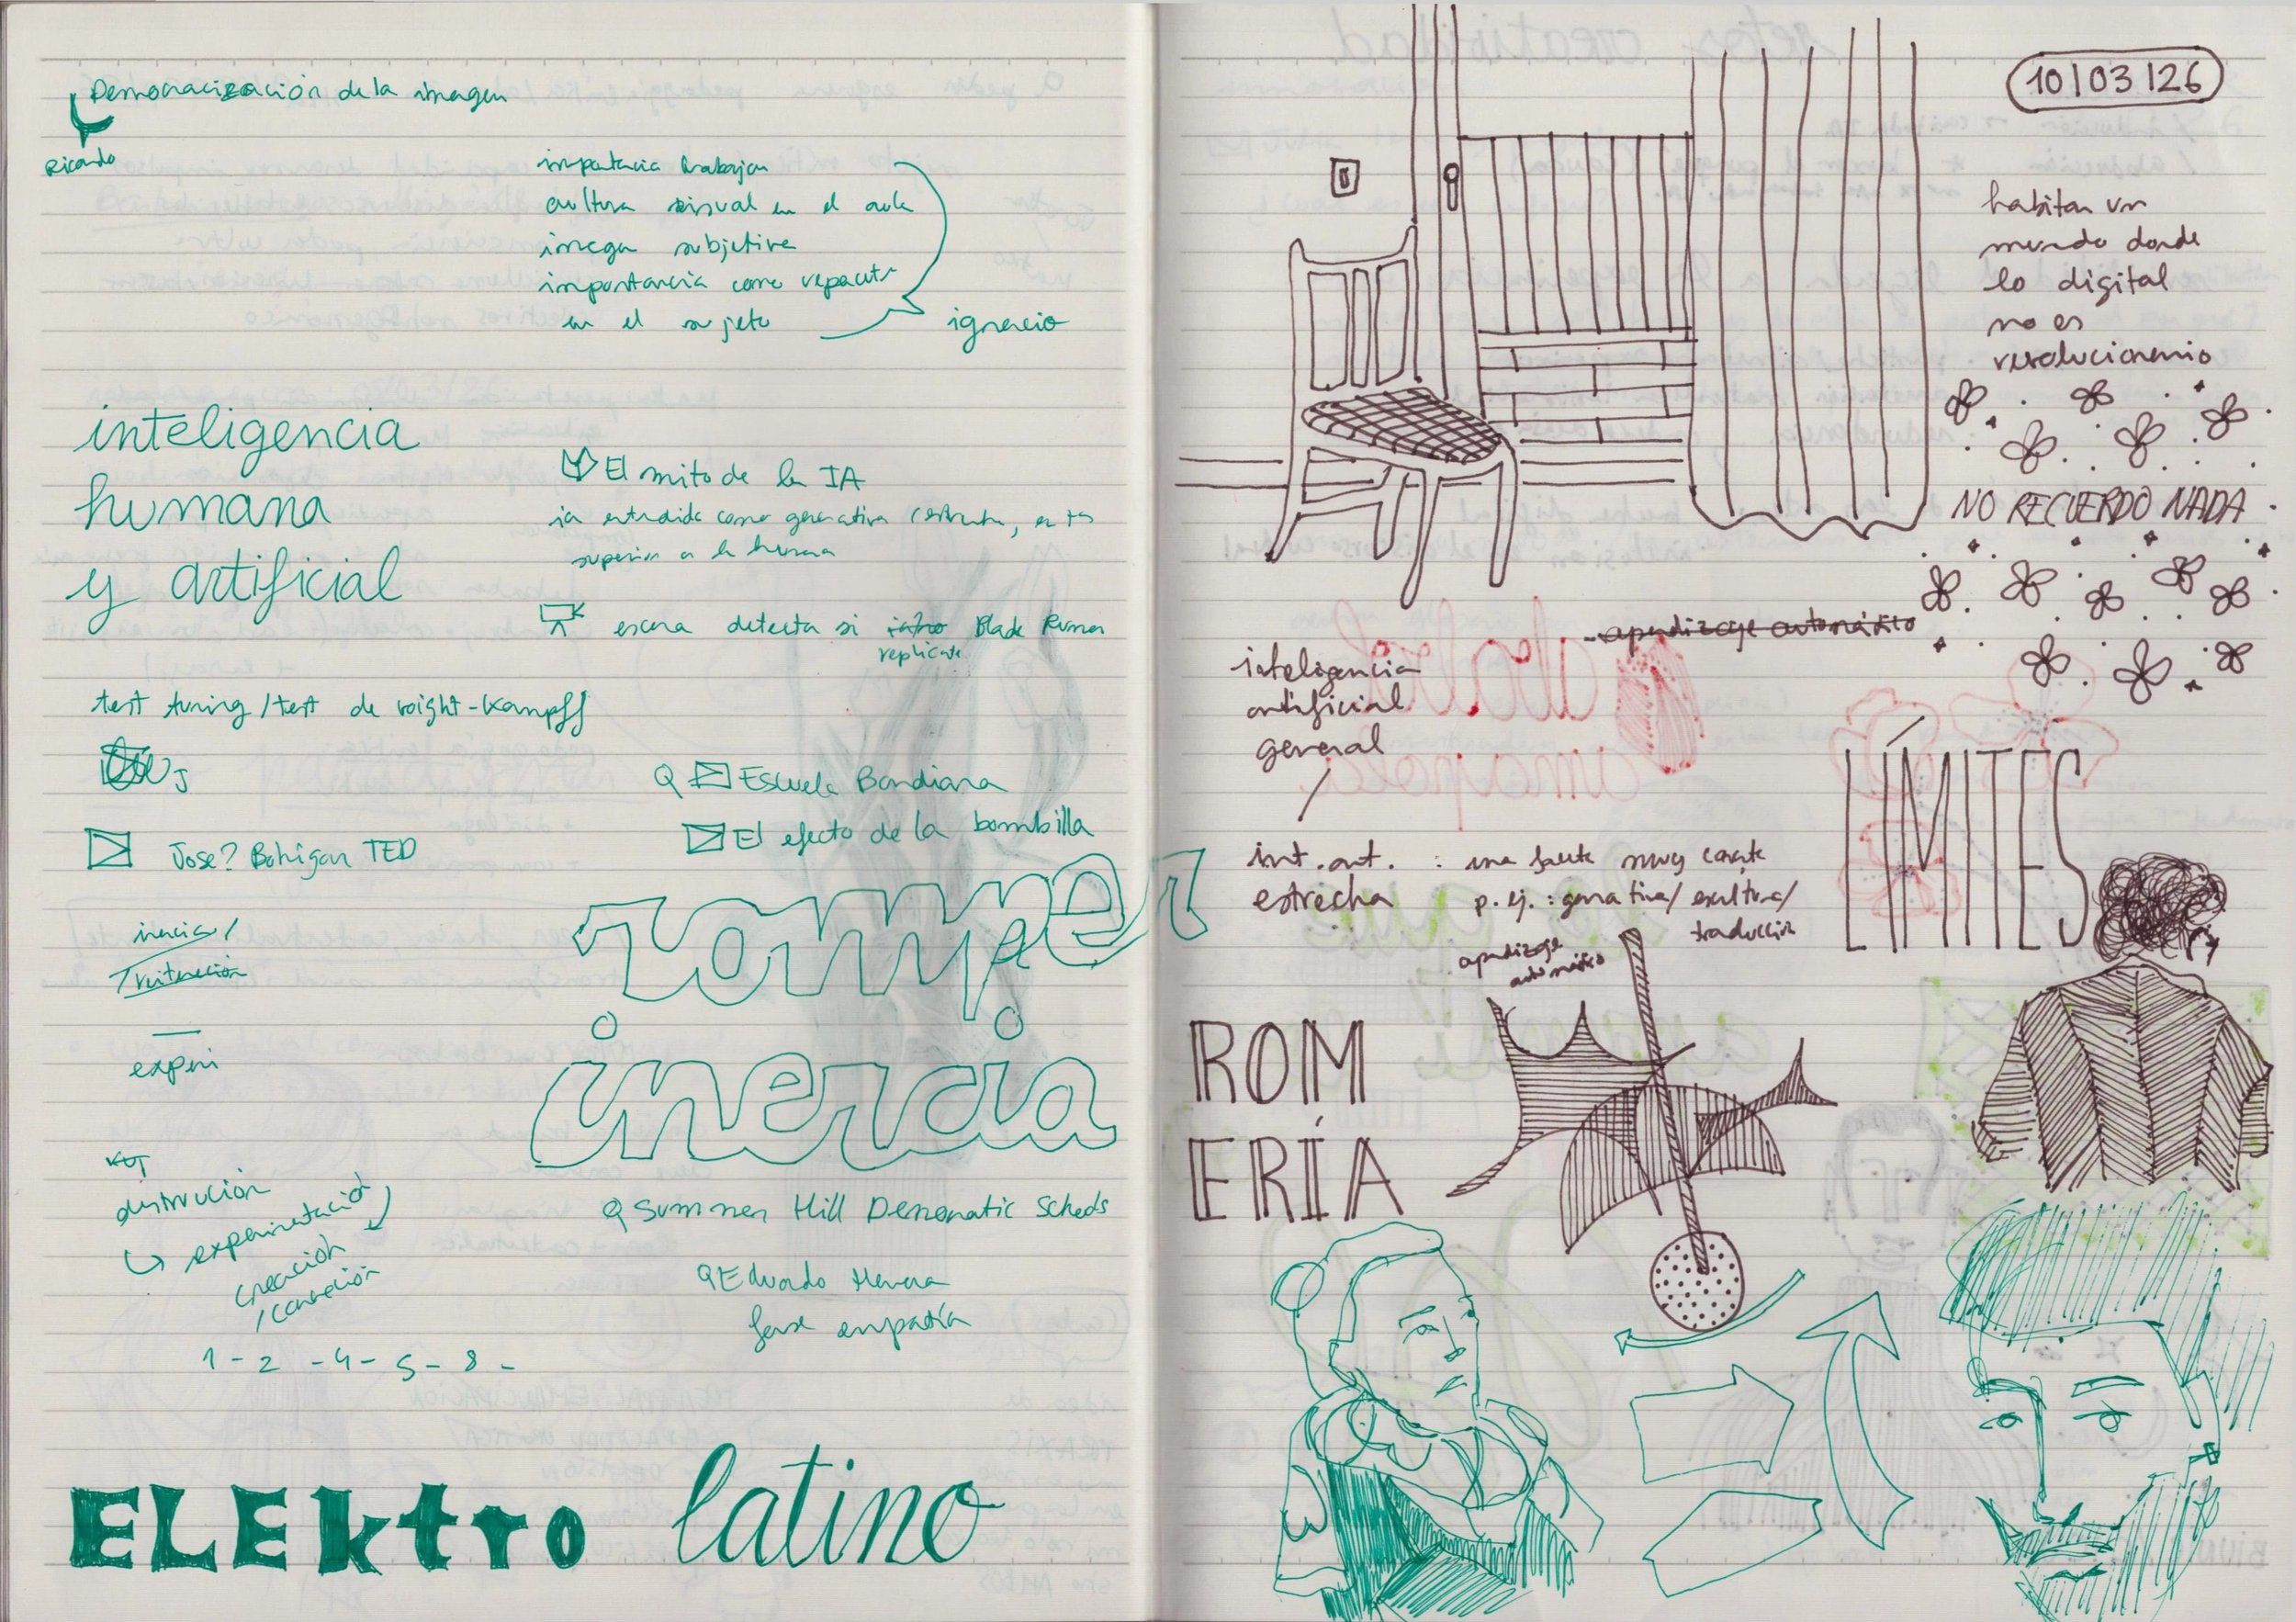 Democracización de la imagen
Ricardo
importacia trabajar
cultura visual en el aula
imagen subjetiva
importancia como repacute
en el sujeto
ignacio
inteligencia
humana
y artificial
El mito de la IA
ia entendida como generativa estrecha, en
superior a la humana
escena detecta si Blade Runner
replicante
test turing / test de voight-kampff
J
Jose? Bohigan TED
Q Escuela Bandiana
El efecto de la bombilla
inercia /
reiteración
romper
inercia
experi
KUT
destrucción
experimentación
creación
/ conexión
Q Summer Hill Democratic Scheds
Q Eduardo Herrera
fase empatía
1 - 2 - 4 - 5 - 8 -
ELEktro latino
10/03/26
habitar un
mundo donde
lo digital
no es
revolucionario
NO RECUERDO NADA
- aprendizaje automático
inteligencia
artificial
general
/
int. art. : una fuente muy concreta
estrecha p. ej. : generativa / escritura /
traducción
aprendizaje
automático
LÍMITES
ROM
ERÍA